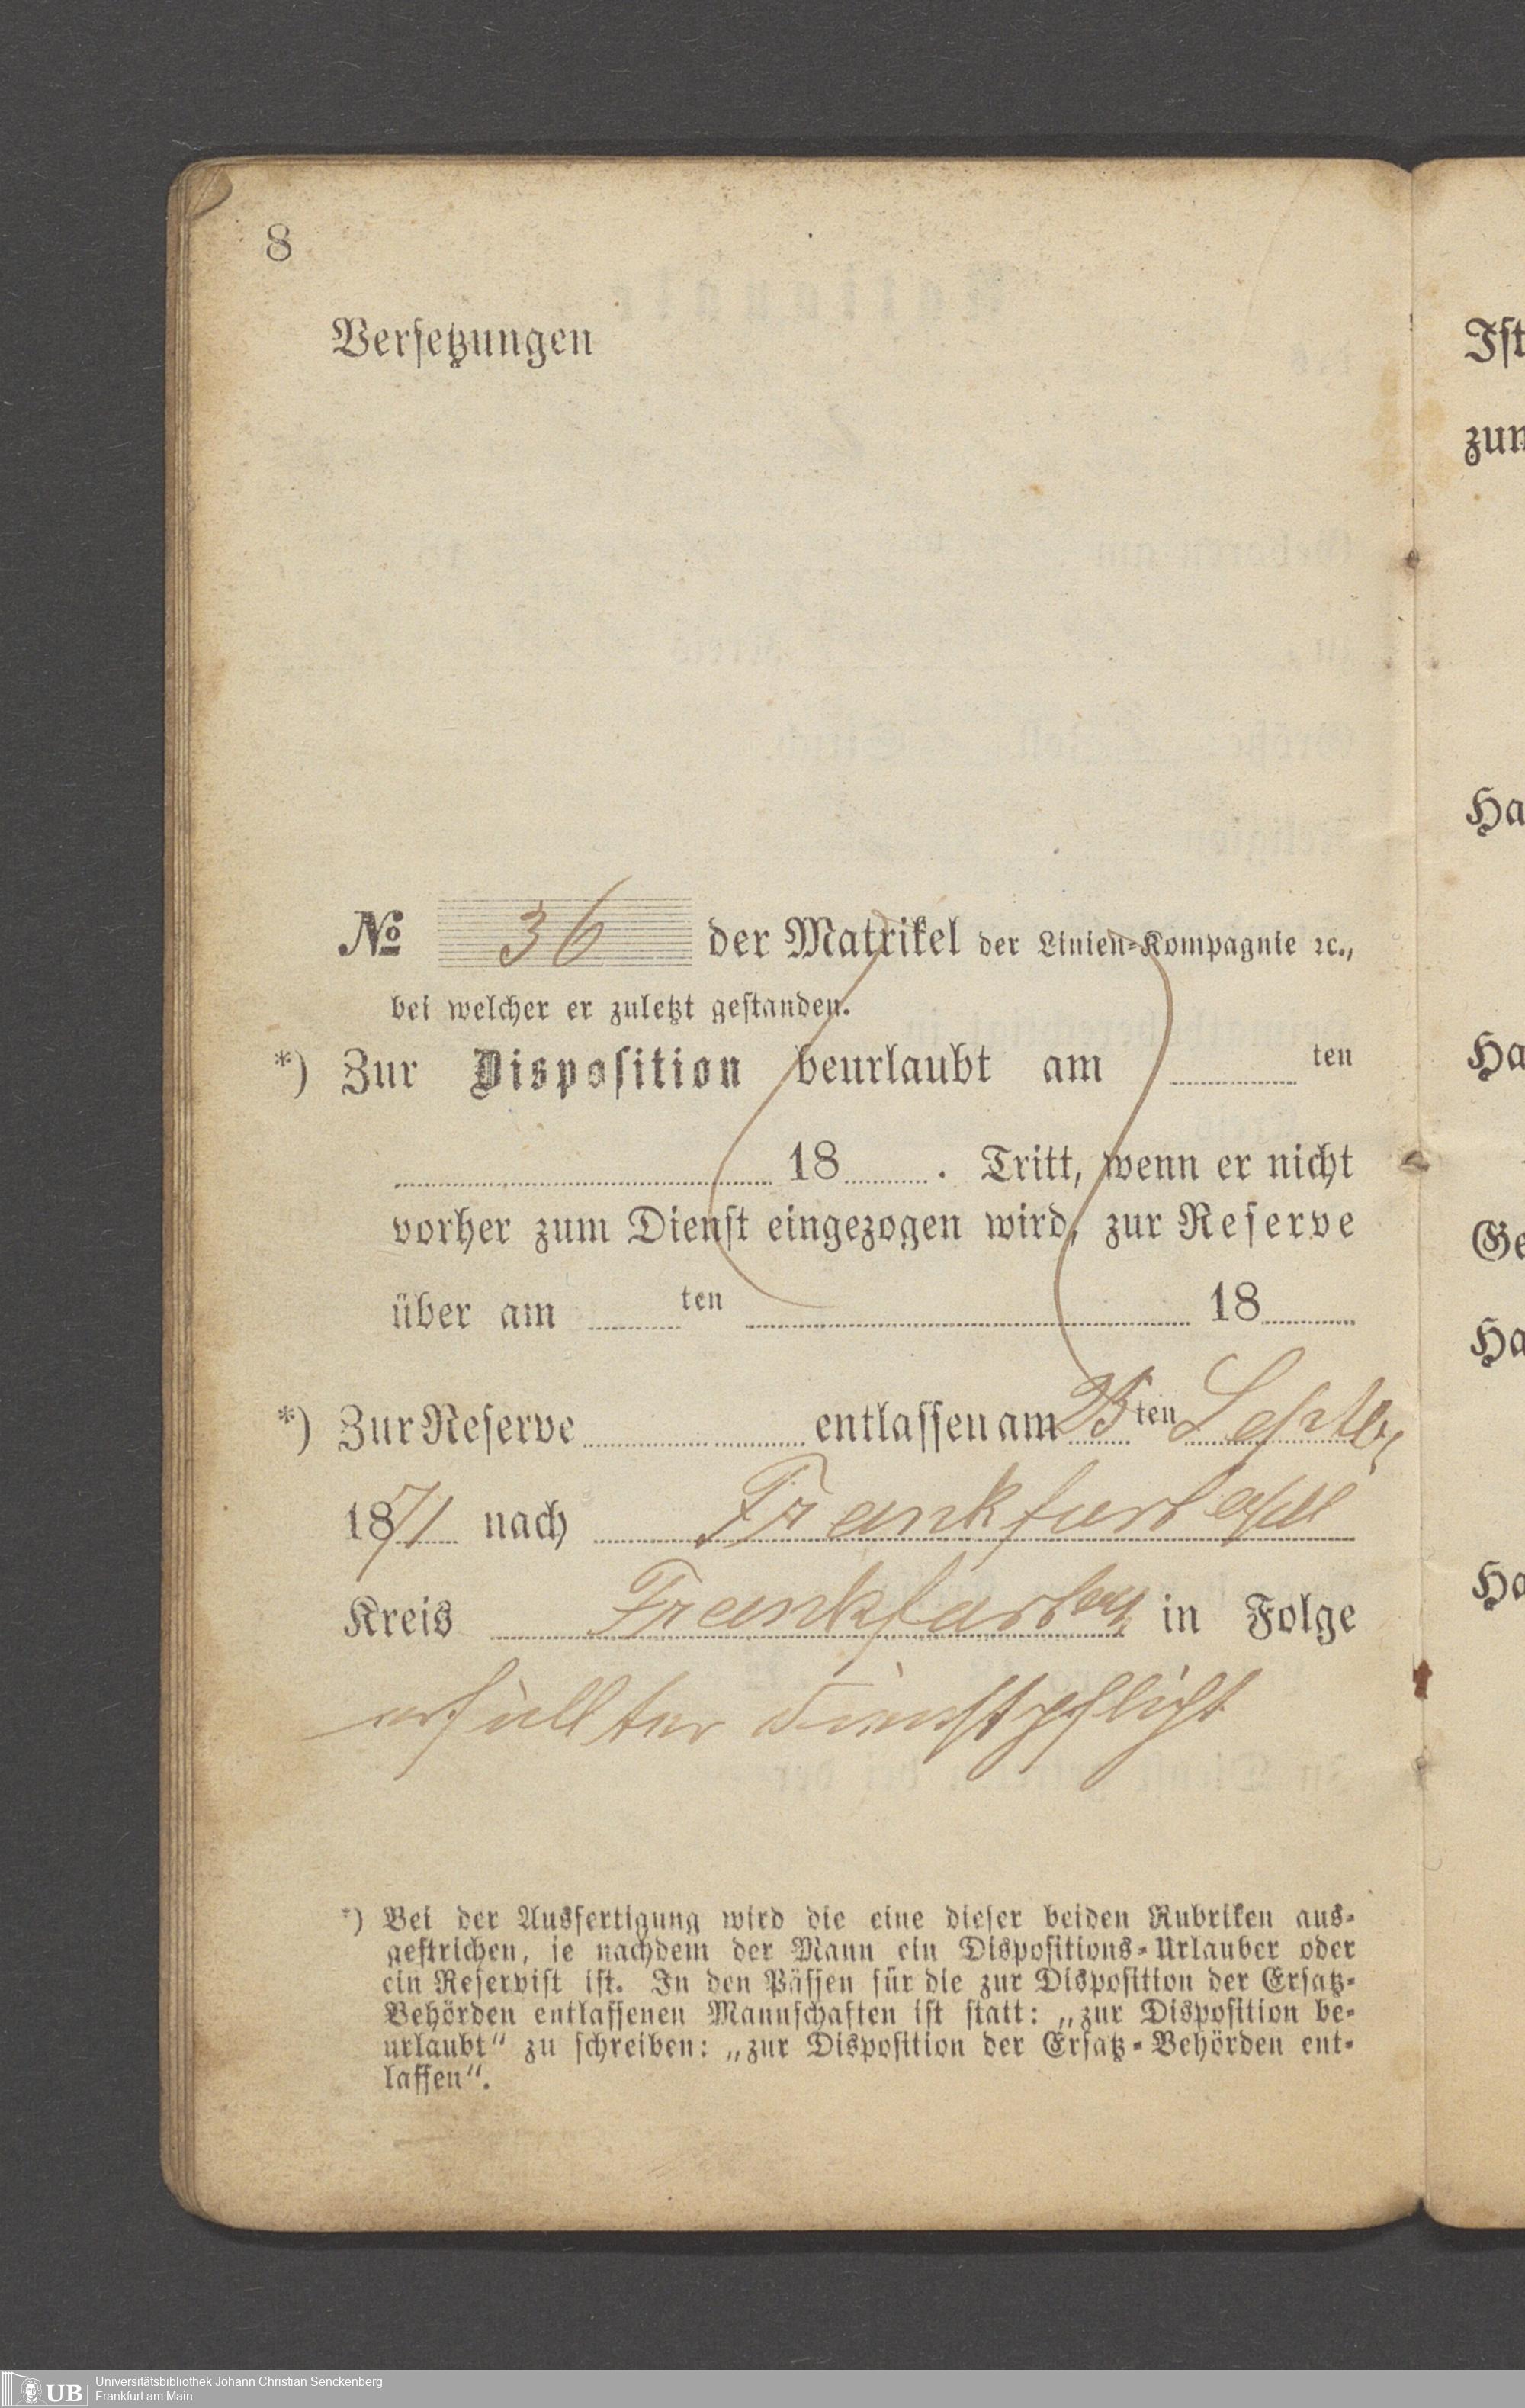 8
Versetzungen
No 36 der Matrikel der Linien-Kompagnie ꝛc.,
bei welcher er zuletzt gestanden.
*) Zur Disposition beurlaubt am ten
18 . Tritt, wenn er nicht
vorher zum Dienst eingezogen wird, zur Reserve
über am ten 18
*) Zur Reserve entlassen am 25 ten Septbr
1871 nach Frankfurt a/M
Kreis Frankfurt in Folge
erfüllter Dienstpflicht
*) Bei der Ausfertigung wird die eine dieser beiden Rubriken aus-
gestrichen, je nachdem der Mann ein Dispositions-Urlauber oder
ein Reservist ist. In den Pässen für die zur Disposition der Ersatz-
Behörden entlassenen Mannschaften ist statt: „zur Disposition be-
urlaubt“ zu schreiben: „zur Disposition der Ersatz-Behörden ent-
lassen“.
Ist
zum
Ha
Ha
Ge
Ha
Ha
UB
Universitätsbibliothek Johann Christian Senckenberg
Frankfurt am Main